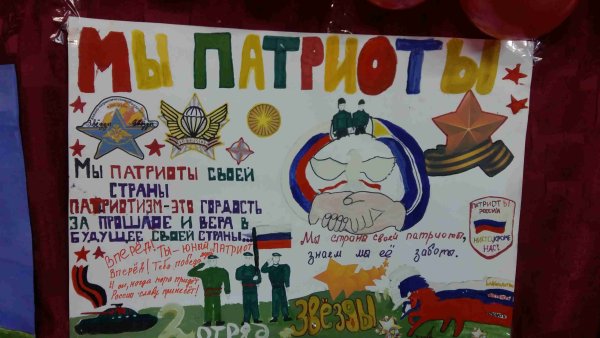 МЫ ПАТРИОТЫ
ПАТРИОТ
МЫ ПАТРИОТЫ СВОЕЙ
СТРАНЫ
ПАТРИОТИЗМ-ЭТО ГОРДОСТЬ
ЗА ПРОШЛОЕ И ВЕРА В
БУДУЩЕЕ СВОЕЙ СТРАНЫ...
ВПЕРЁД! ТЫ - ЮНЫЙ ПАТРИОТ
Вперёд!
Россию славу принесёт!
Мы страны своей патриоты,
знаем мы её забота.
ПАТРИОТЫ
РОССИИ
НИКТО КРОМЕ
НАС!
2 ОТРЯД
ЗВЁЗДЫ